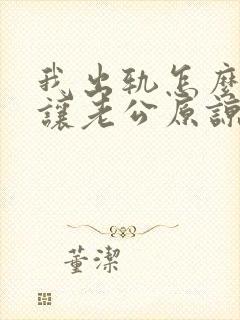 我出轨怎麼
讓老公原諒
董潔